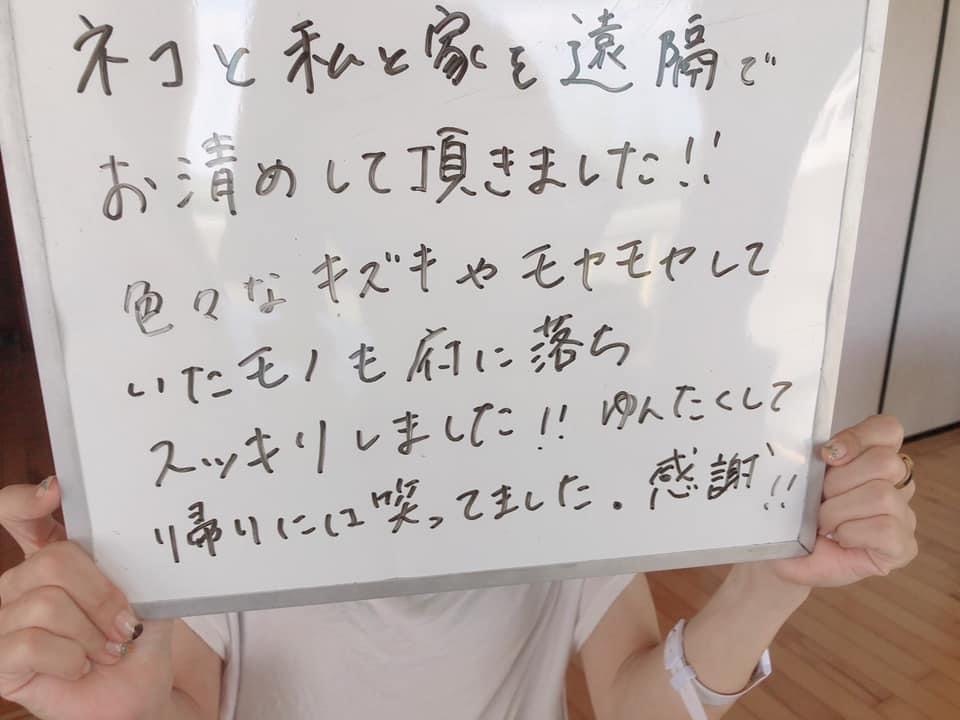 ネコと私と家を遠隔で
お清めして頂きました!!
色々なキズキやモヤモヤして
いたモノも府に落ち
スッキリしました!! ゆんたくして
帰りには笑ってました。感謝!!